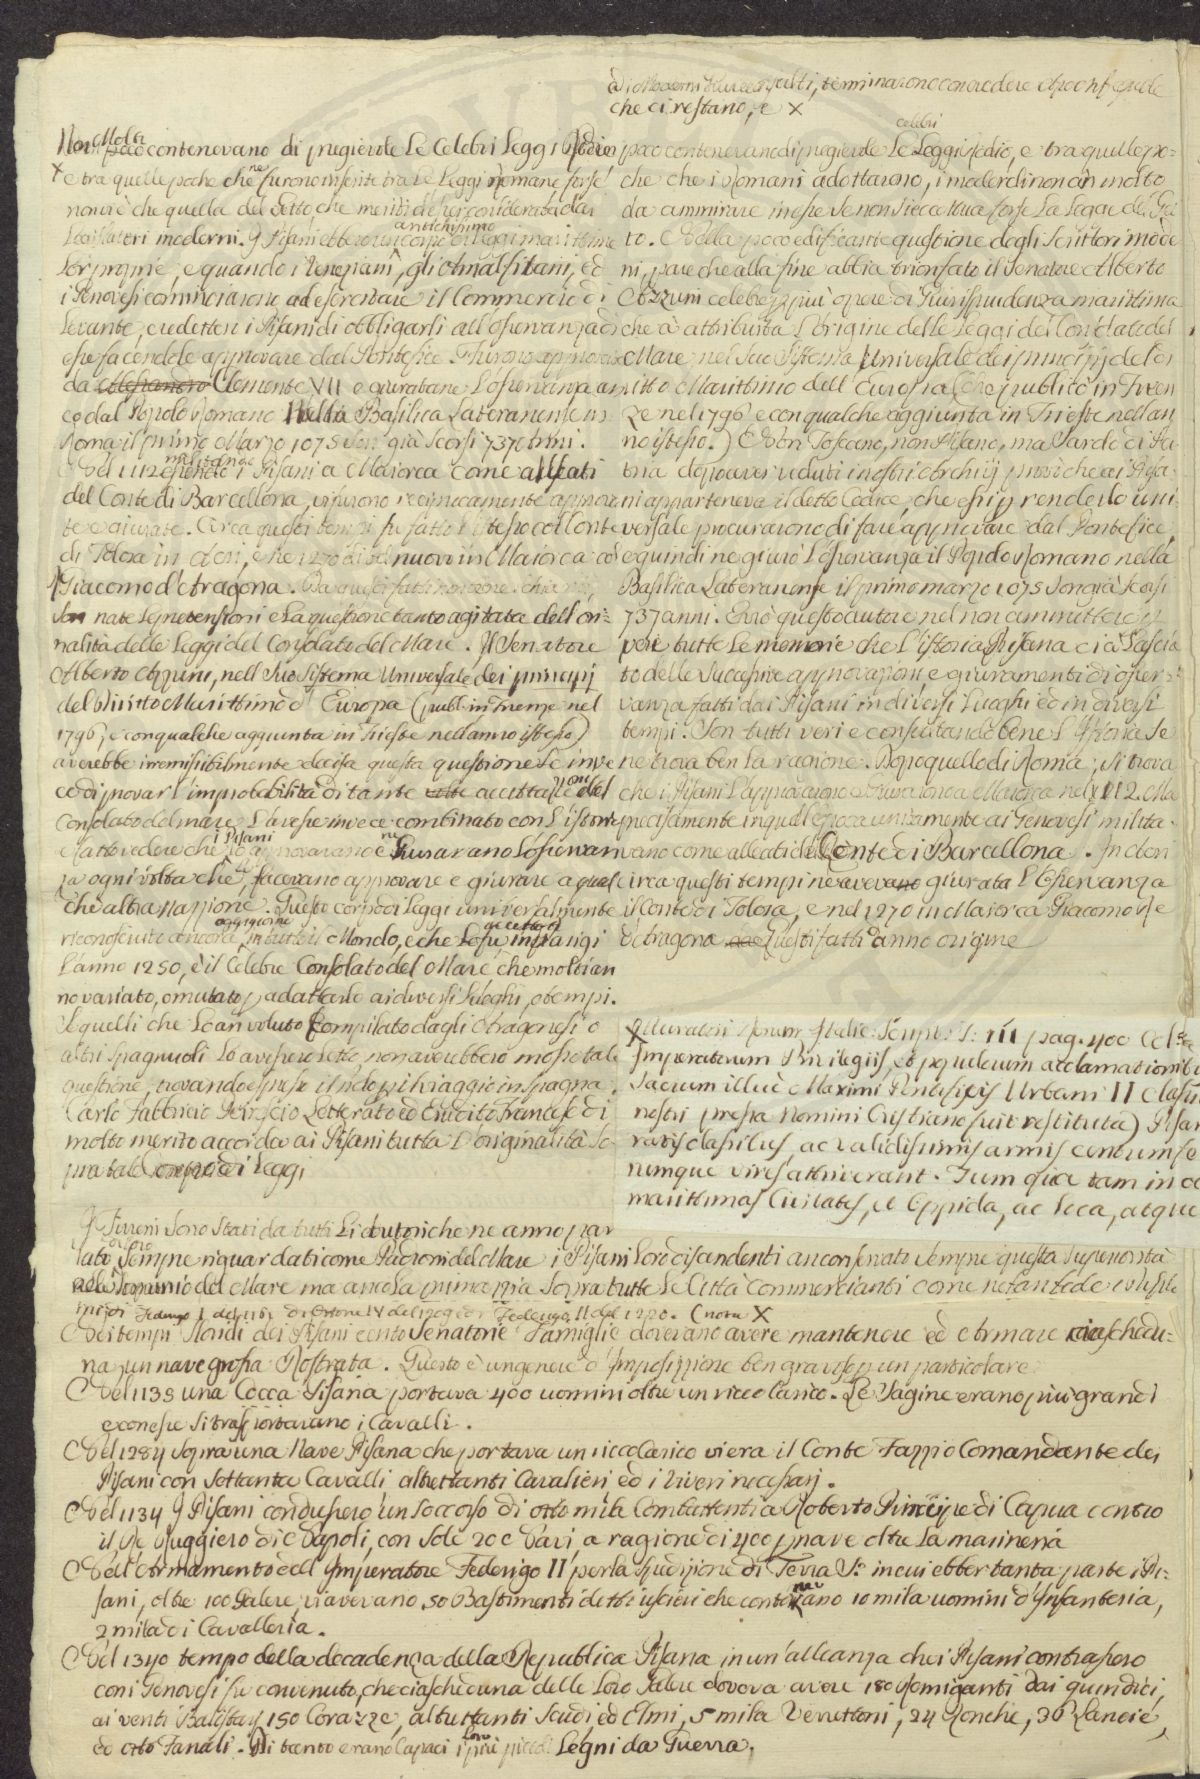 che ci restano, e X
Non poco contenevano di pregievole Le Celebri Leggi Rodie
X e tra quelle poche che furono inserite tra Le Leggi Romane forse
non v'è che quella del Getto, che meriti
Legislatori moderni. I Pisani ebbero un corpo di Leggi marittime
antichissimo
Lor proprie, e quando i Veneziani, gli Amalfitani, ed
i Genovesi cominciarono ad esercitare il Commercio di
Levante, credetter i Pisani di obbligarli all'osservanza di
esse facendole approvare dal Pontefice. Furono approvate
da Clemente VII e giurarane L'osservanza an
co dal Popolo Romano Nella Basilica Lateranense in
Roma il primo Marzo 1075 son già scorsi 737 anni.
Nel 1112 i Pisani a Maiorca come alleati
militando
del Conte di Barcellona, vi furono reciprocamente approva
te e giurate. Circa questi tempi fu fatto l'istesso col Conte
di Tolosa in Acri, e nel 1270 di bel nuovo in Maiorca con
Giacomo d'Aragona.
son nate Le pretensioni e La questione tanto agitata dell'ori-
nalità delle Leggi del Consolato del Mare. Il Senatore
Alberto Azzuni, nell Suo Sistema Universale dei principj
del Diritto Marittimo d' Europa (publ. in Firenze nel
1796, e con qualche aggiunta in Trieste nell'anno istesso)
averebbe irremisibilmente decisa questa questione Se inve
ce di provar l'improbabilità di tante accettazioni del
Consolato del mare L'avesse invece combinato con L'istoria
e fatto vedere che i Pisani Lo approvarono e Giurarano L'osservan
za ogni volta che Lo facevano approvare e giurare a qual
che altra Nazione. Questo corpo di Leggi universalmente
riconosciuto ancora in tutto il Mondo, e che Lo fu in Parigi
L'anno 1250, è il Celebre Consolato del Mare che molti an
no variato, o mutato p adattarlo ai diversi Luoghi, o tempi.
Se quelli che Lo an voluto Compilato dagli Aragonesi o
altri Spagnuoli Lo avessero Letto non averebbero mosso tale
questione, trovando espresse il nolo pil viaggio in Spagna.
Carlo Fabbricio Peirescio Letterato ed Erudito Francese di
molto merito accorda ai Pisani tutta L'originalità So
pra tale Corpo di Leggi
poco contenevano di pregievole Le Leggi Rodie, e tra quelle po-
celebri
che che i Romani adottarono, i moderni non an molto
da ammirare in esse se non si eccettua forse La Legge del Get
to. Nella poco edificante questione degli Scrittori moder
ni, pare che alla fine abbia trionfato il Senatore Alberto
Azzuni celebre p più opere di Giurisprudenza marittima
che à attribuita L'origine delle Leggi del Consolato del
Mare nel Suo Sistema Universale dei principj del Di
ritto Marittimo dell' Europa (che publicò in Firen
ze nel 1796 e con qualche aggiunta in Trieste nell'an
no istesso.) Non Toscano, non Pisano, ma Sardo di Pa
tria dopo aver veduti i nostri Archivj provò che ai Pisa
ni apparteneva il detto Codice, che essi p renderlo uni
versale procurarono di fare approvare dal Pontefice,
e quindi ne giurò L'osservanza il Popolo Romano nella
Basilica Lateranense il primo marzo 1075 son già scorsi
737 anni. Errò questo autore nel non ammettere p
vere tutte Le memorie che L'istoria Pisana ci à Lascia
to delle Successive approvazioni e giuramenti di osser-
vanza fatti dai Pisani in diversi Luoghi ed in diversi
tempi. Son tutti veri e consultando bene L'Istoria Se
ne trova ben La ragione. Dopo quello di Roma, Si trova
che i Pisani L'approvarono e Giurarono a Maiorca nel 1112. Ma
precisamente in quall'epoca unitamente ai Genovesi milita-
vano come alleati del Conte di Barcellona. In Acri
circa questi tempi ne aveva giurata L'Osservanza
il Conte di Tolosa, e nel 1270 in Maiorca Giacomo Re
d'Aragona. Questi fatti anno origine
X Muratori Rerum Italic: Script: T: III pag. 400
Imperatorum Privilegiis, et populorum acclamationibu
Sacrum illud Maximi Pontificis Urbani II
nostri pressa Nomini Cristiano fuit restituta) Pisan
ratis classibus, ac validissimis armis centum se
numque vires attriverant. Tum quia tam in
marittimas Civitates, et Oppida, ac Loca, atque
I Tirreni Sono Stati da tutti Li Autori che ne anno par
lato Sempre riguardati come Padroni del Mare i Pisani Loro discendenti an conservata Sempre questa Superiorità
nel Dominio del Mare ma ancora La primazia Sopra tutte Le Città Commercianti come ne fan fede i
Federigo I del 1162 di Ottone IV del 1209 e di Federigo II del 1220. (nota X
Nei tempi Floridi dei Pisani cento Senatorie Famiglie dovevano avere mantenere ed Armare ciaschedu-
na un nave grossa Rostrata. Questo è un genere d'Imposizione ben grave p un particolare.
Nel 1138 una Cocca Pisana portava 400 uomini oltre un ricco Carico. Le Sagine erano più grandi
e con esse si trasportavano i Cavalli.
Nel 1284 Sopra una Nave Pisana che portava un ricco Carico vi era il Conte Fazzio Comandante dei
Pisani con Settanta Cavalli, altrettanti Cavalieri ed i Viveri necessarj.
Nel 1134 I Pisani condussero un Soccorso di otto mila Combattenti a Roberto Principe di Capua contro
il Re Ruggiero di Napoli, con sole 20 Navi, a ragione di 400 p nave oltre La marineria
Nell'Armamento dell'Imperatore Federigo II, per la Spedizione di Terra Sa. in cui ebber tanta parte i Pi-
sani, oltre 100 Galere, vi avevano 50 Bastimenti detti uscieri che contenevano 10 mila uomini d'Infanteria,
2 mila di Cavalleria.
Nel 1340 tempo della decadenza della Republica Pisana in un'alleanza che i Pisani contrassero
con i Genovesi fu convenuto, che ciascheduna delle Loro Galere doveva avere 180 Remiganti dai quindici,
ai venti Balistarj, 150 Corazze, altrettanti Scudi, ed Elmi, 5 mila Verrettoni, 24 Ronche, 36 Lancie,
ed otto Fanali. Di tanto erano capaci i Loro più piccoli Legni da Guerra.